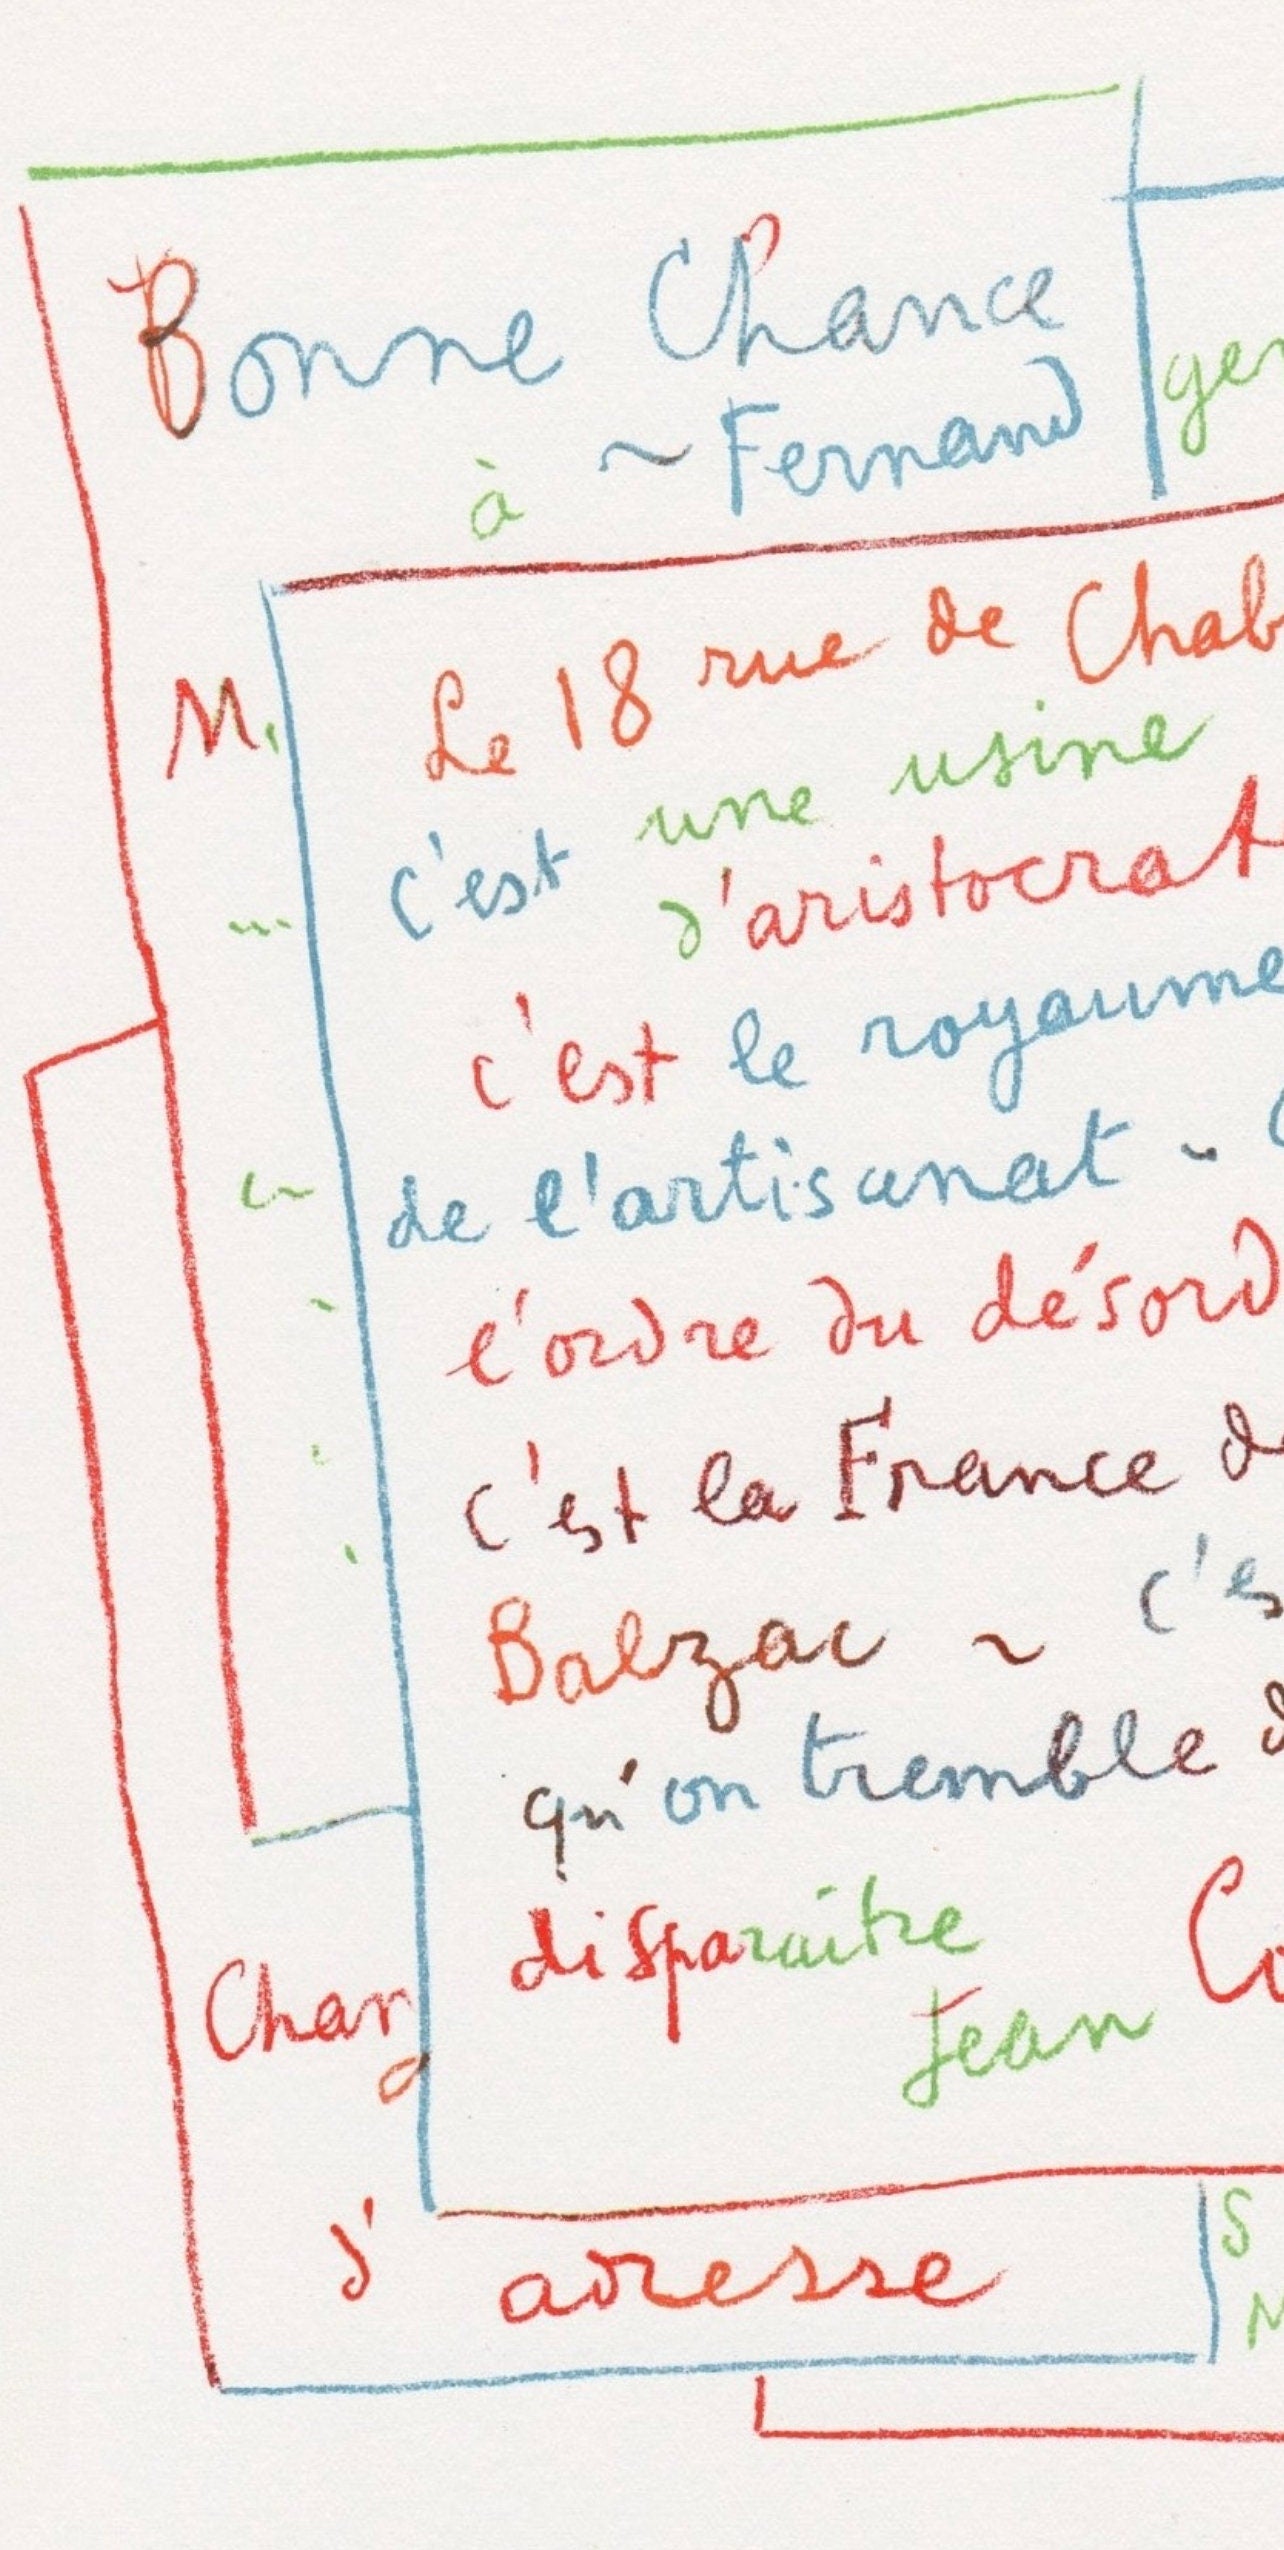 Bonne Chance
à ~ Fernand
ger
M.
Le 18 rue de Chab
c'est une usine
d'aristocrat
c'est le royaume
de l'artisanat -
l'ordre du désord
c'est la France de
Balzac ~ c'es
qu'on tremble d
disparaitre
Jean Co
Chang
d'adresse
S
N